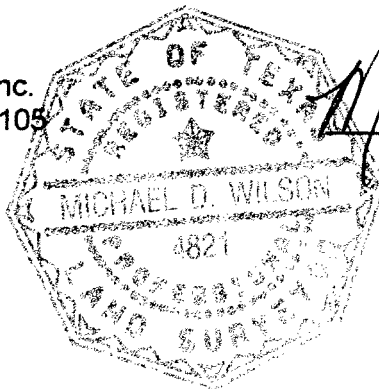 nc.
105
STATE OF TEXAS
REGISTERED
MICHAEL D. WILSON
4821
PROFESSIONAL
LAND SURVEYOR